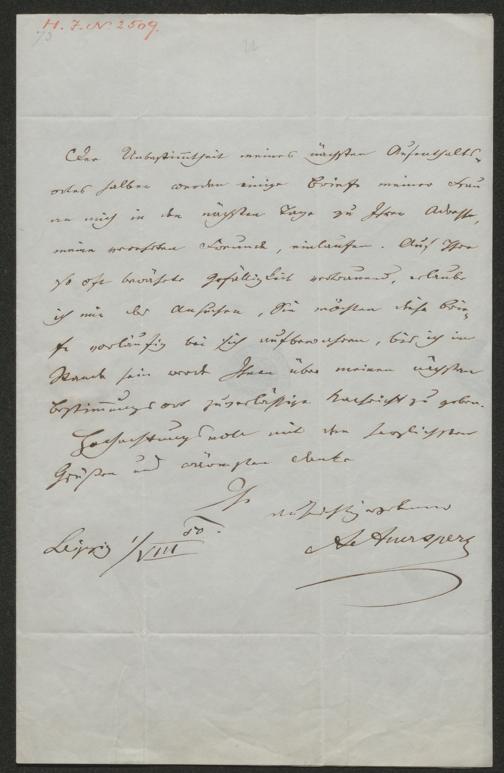 H. I. N. 2509.
Der Unbestimmtheit meines nächsten Aufenthalts-
ortes halber werden einige Briefe meiner Frau
an mich in den nächsten Tagen zu Ihrer Adresse,
meine verehrten Freunde, einlaufen. Auf Ihre
so oft bewährte Gefälligkeit vertrauend, erlaube
ich mir das Ansuchen, Sie möchten diese Brie-
fe vorläufig bei sich aufbewahren, bis ich im
Stande sein werde Ihnen über meinen nächsten
Bestimmungsort zuverlässige Nachricht zu geben.
Hochachtungsvoll mit den herzlichsten
Grüßen und wärmsten Danke
Ihr
aufrichtig ergebener
Leipzig 1/VIII 50.
A Auersperg